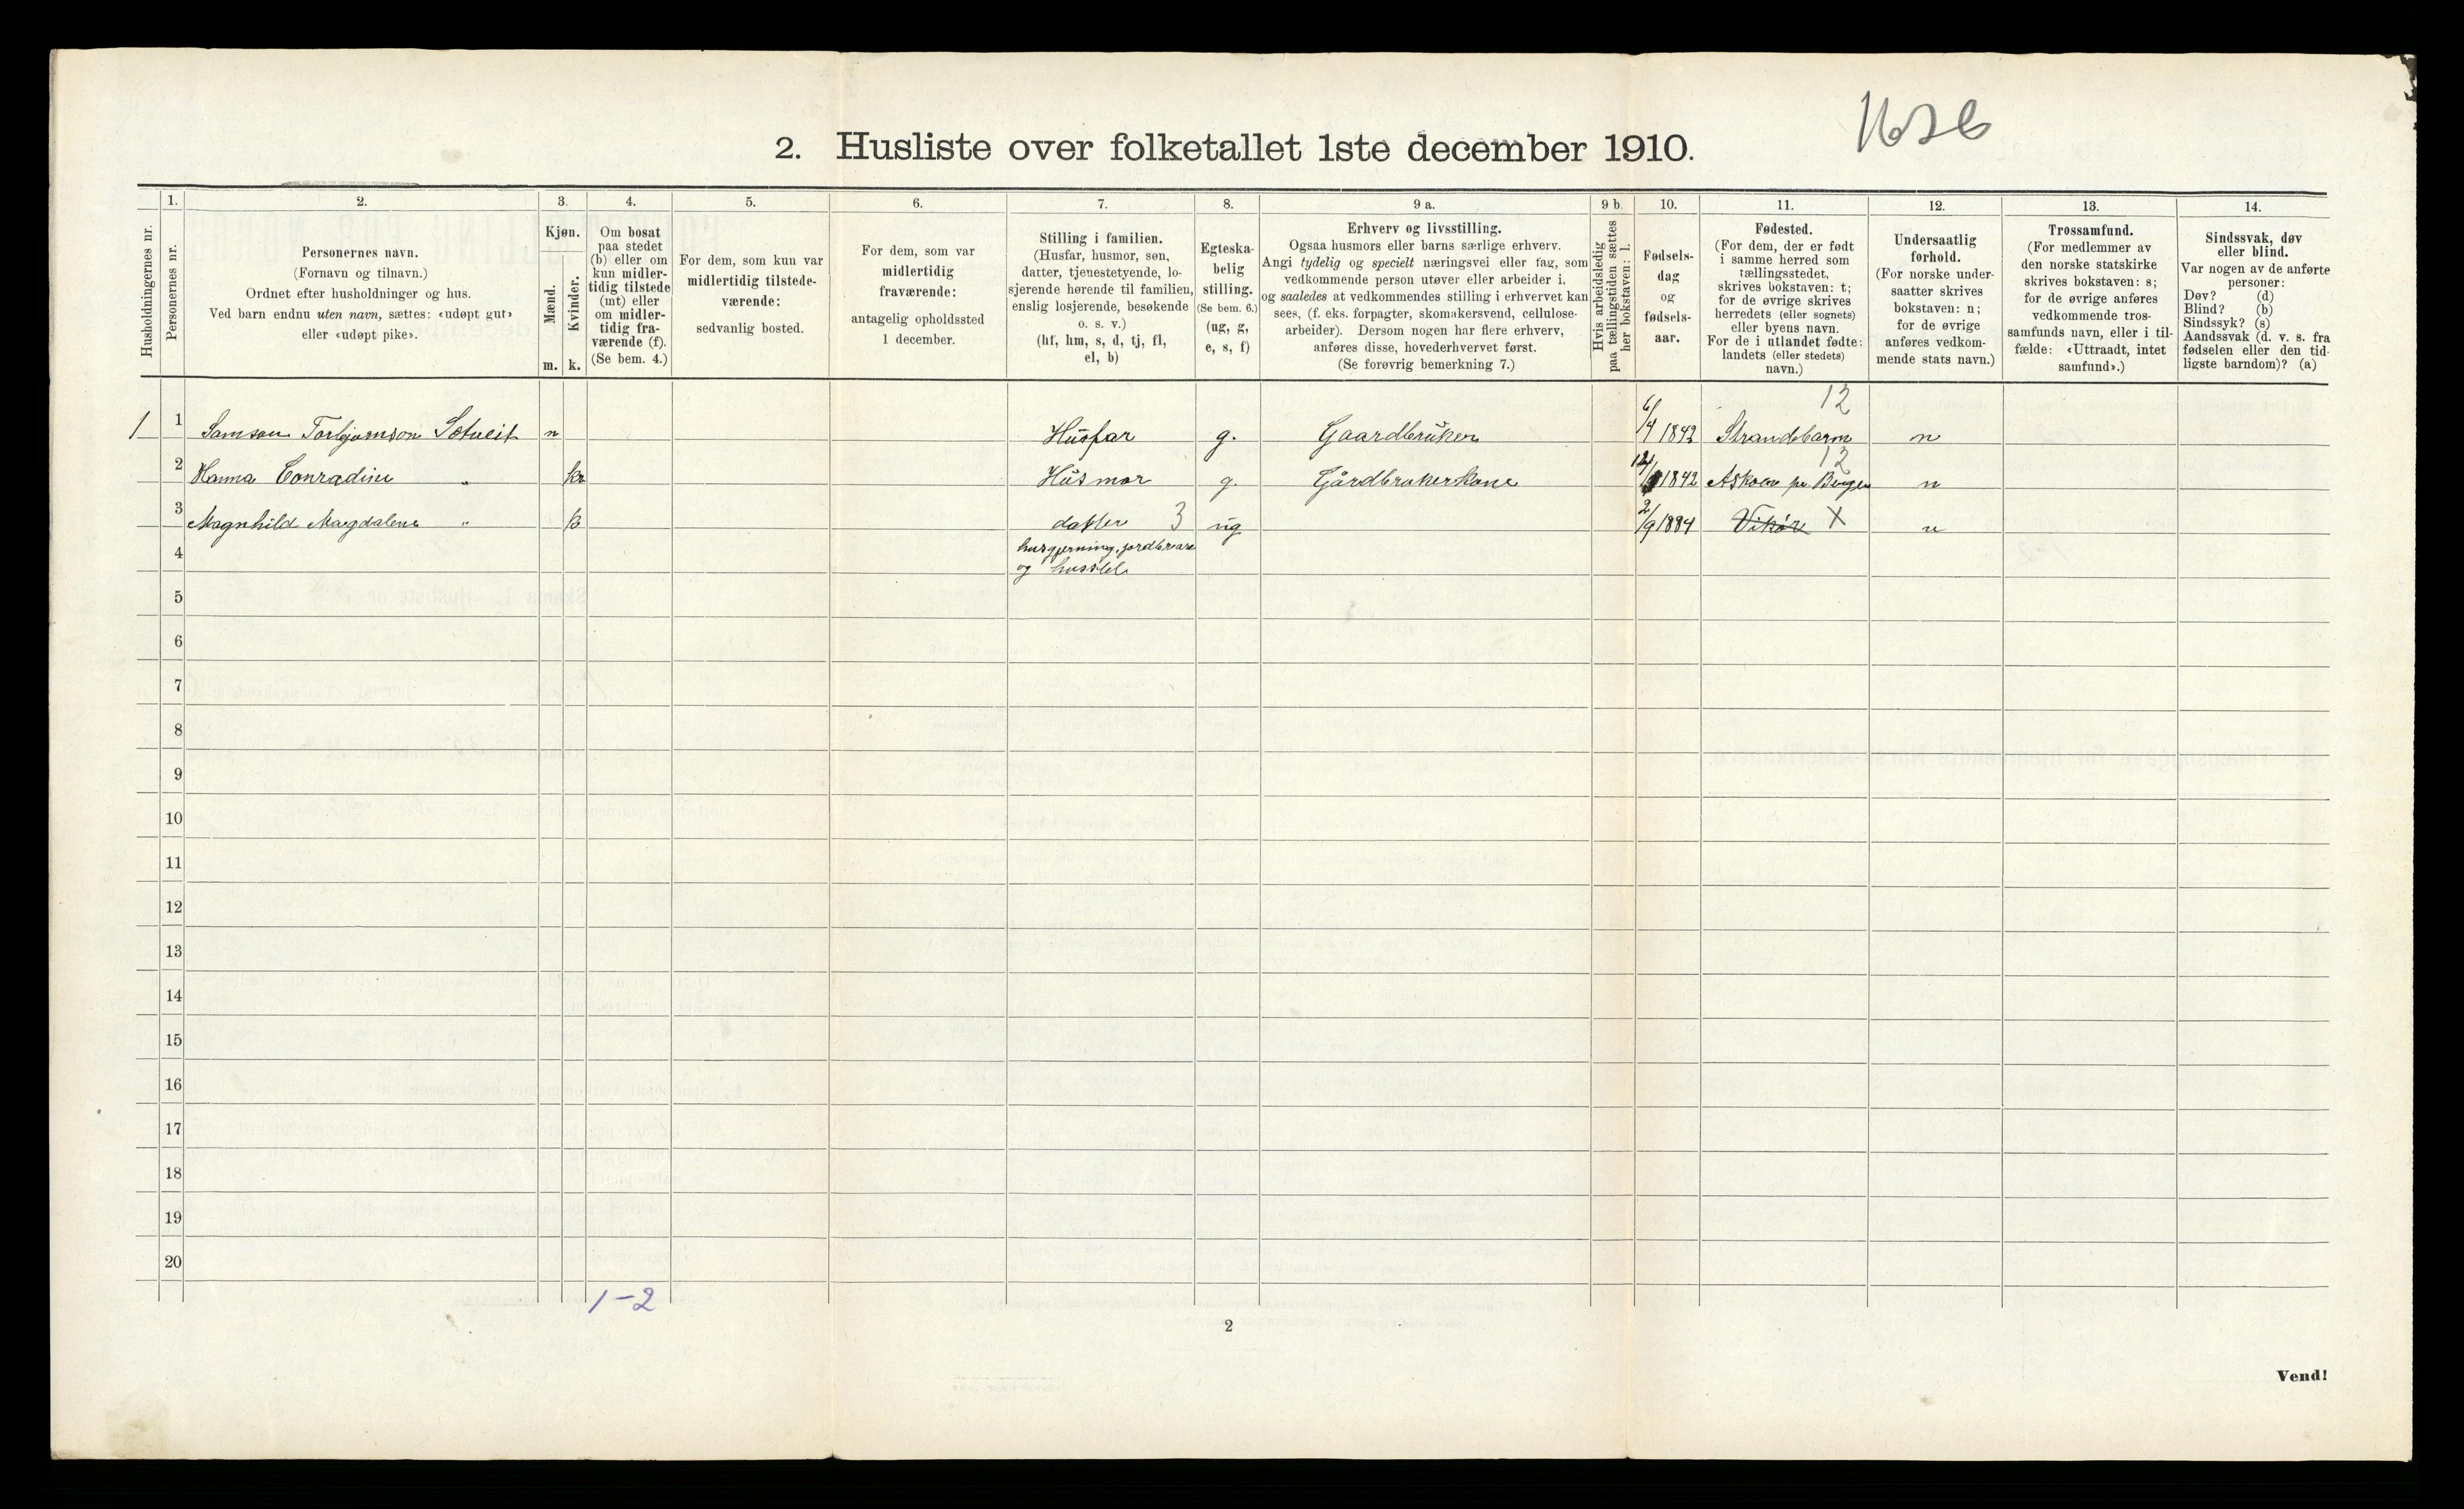 1636
2. Husliste over folketallet 1ste december 1910.
Husholdningernes nr.
1.
Personernes nr.
2.
Personernes navn.
(Fornavn og tilnavn.)
Ordnet efter husholdninger og hus.
Ved barn endnu uten navn, sættes: «udøpt gut»
eller «udøpt pike».
3.
Kjøn.
Mænd.
Kvinder.
m. k.
4.
Om bosat
paa stedet
(b) eller om
kun midler-
tidig tilstede
(mt) eller
om midler-
tidig fra-
værende (f).
(Se bem. 4.)
5.
For dem, som kun var
midlertidig tilstede-
værende:
sedvanlig bosted.
6.
For dem, som var
midlertidig
fraværende:
antagelig opholdssted
1 december.
7.
Stilling i familien.
(Husfar, husmor, søn,
datter, tjenestetyende, lo-
sjerende hørende til familien,
enslig losjerende, besøkende
o. s. v.)
(hf, hm, s, d, tj, fl,
el, b)
8.
Egteska-
belig
stilling.
(Se bem. 6.)
(ug, g,
e, s, f)
9 a.
Erhverv og livsstilling.
Ogsaa husmors eller barns særlige erhverv.
Angi tydelig og specielt næringsvei eller fag, som
vedkommende person utøver eller arbeider i,
og saaledes at vedkommendes stilling i erhvervet kan
sees, (f. eks. forpagter, skomakersvend, cellulose-
arbeider). Dersom nogen har flere erhverv,
anføres disse, hovederhvervet først.
(Se forøvrig bemerkning 7.)
9 b.
Hvis arbeidsledig
paa tællingstiden sættes
her bokstaven: l.
10.
Fødsels-
dag
og
fødsels-
aar.
11.
Fødested.
(For dem, der er født
i samme herred som
tællingsstedet,
skrives bokstaven: t;
for de øvrige skrives
herredets (eller sognets)
eller byens navn.
For de i utlandet fødte:
landets (eller stedets)
navn.)
12.
Undersaatlig
forhold.
(For norske under-
saatter skrives
bokstaven: n;
for de øvrige
anføres vedkom-
mende stats navn.)
13.
Trossamfund.
(For medlemmer av
den norske statskirke
skrives bokstaven: s;
for de øvrige anføres
vedkommende tros-
samfunds navn, eller i til-
fælde: «Uttraadt, intet
samfund».)
14.
Sindssvak, døv
eller blind.
Var nogen av de anførte
personer:
Døv? (d)
Blind? (b)
Sindssyk? (s)
Aandssvak (d. v. s. fra
fødselen eller den tid-
ligste barndom)? (a)
12
1 1 Samson Torbjørnson Sætveit m Husfar g. Gaardbruker 6/4 1842 Strandebarm n
12
2 Hanna Conradine " k Husmor g. Gårdbrukerkone 1842 Askøen pr. Bergen n
3 Magnhild Magdalene " k datter 3 ug 2/9 1884 Vikør X n
4 husgjerning, jordbruk
og husstel
5
6
7
8
9
10
11
12
13
14
15
16
17
18
19
20
1-2
2
Vend!